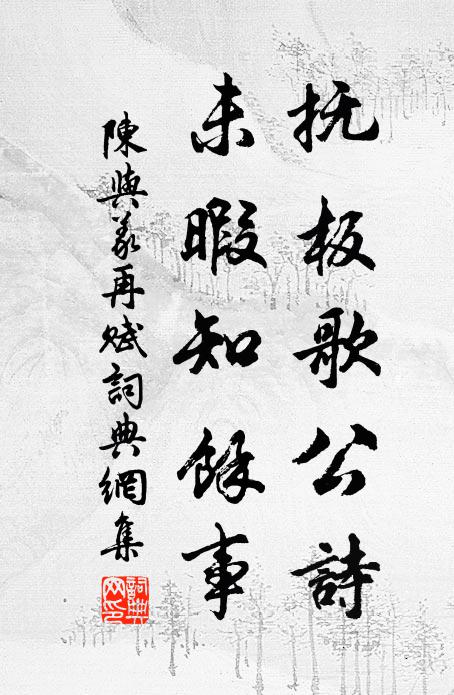 抚板歌公詩
未暇知餘事
陳與義再賦詞典網集
詞典網印